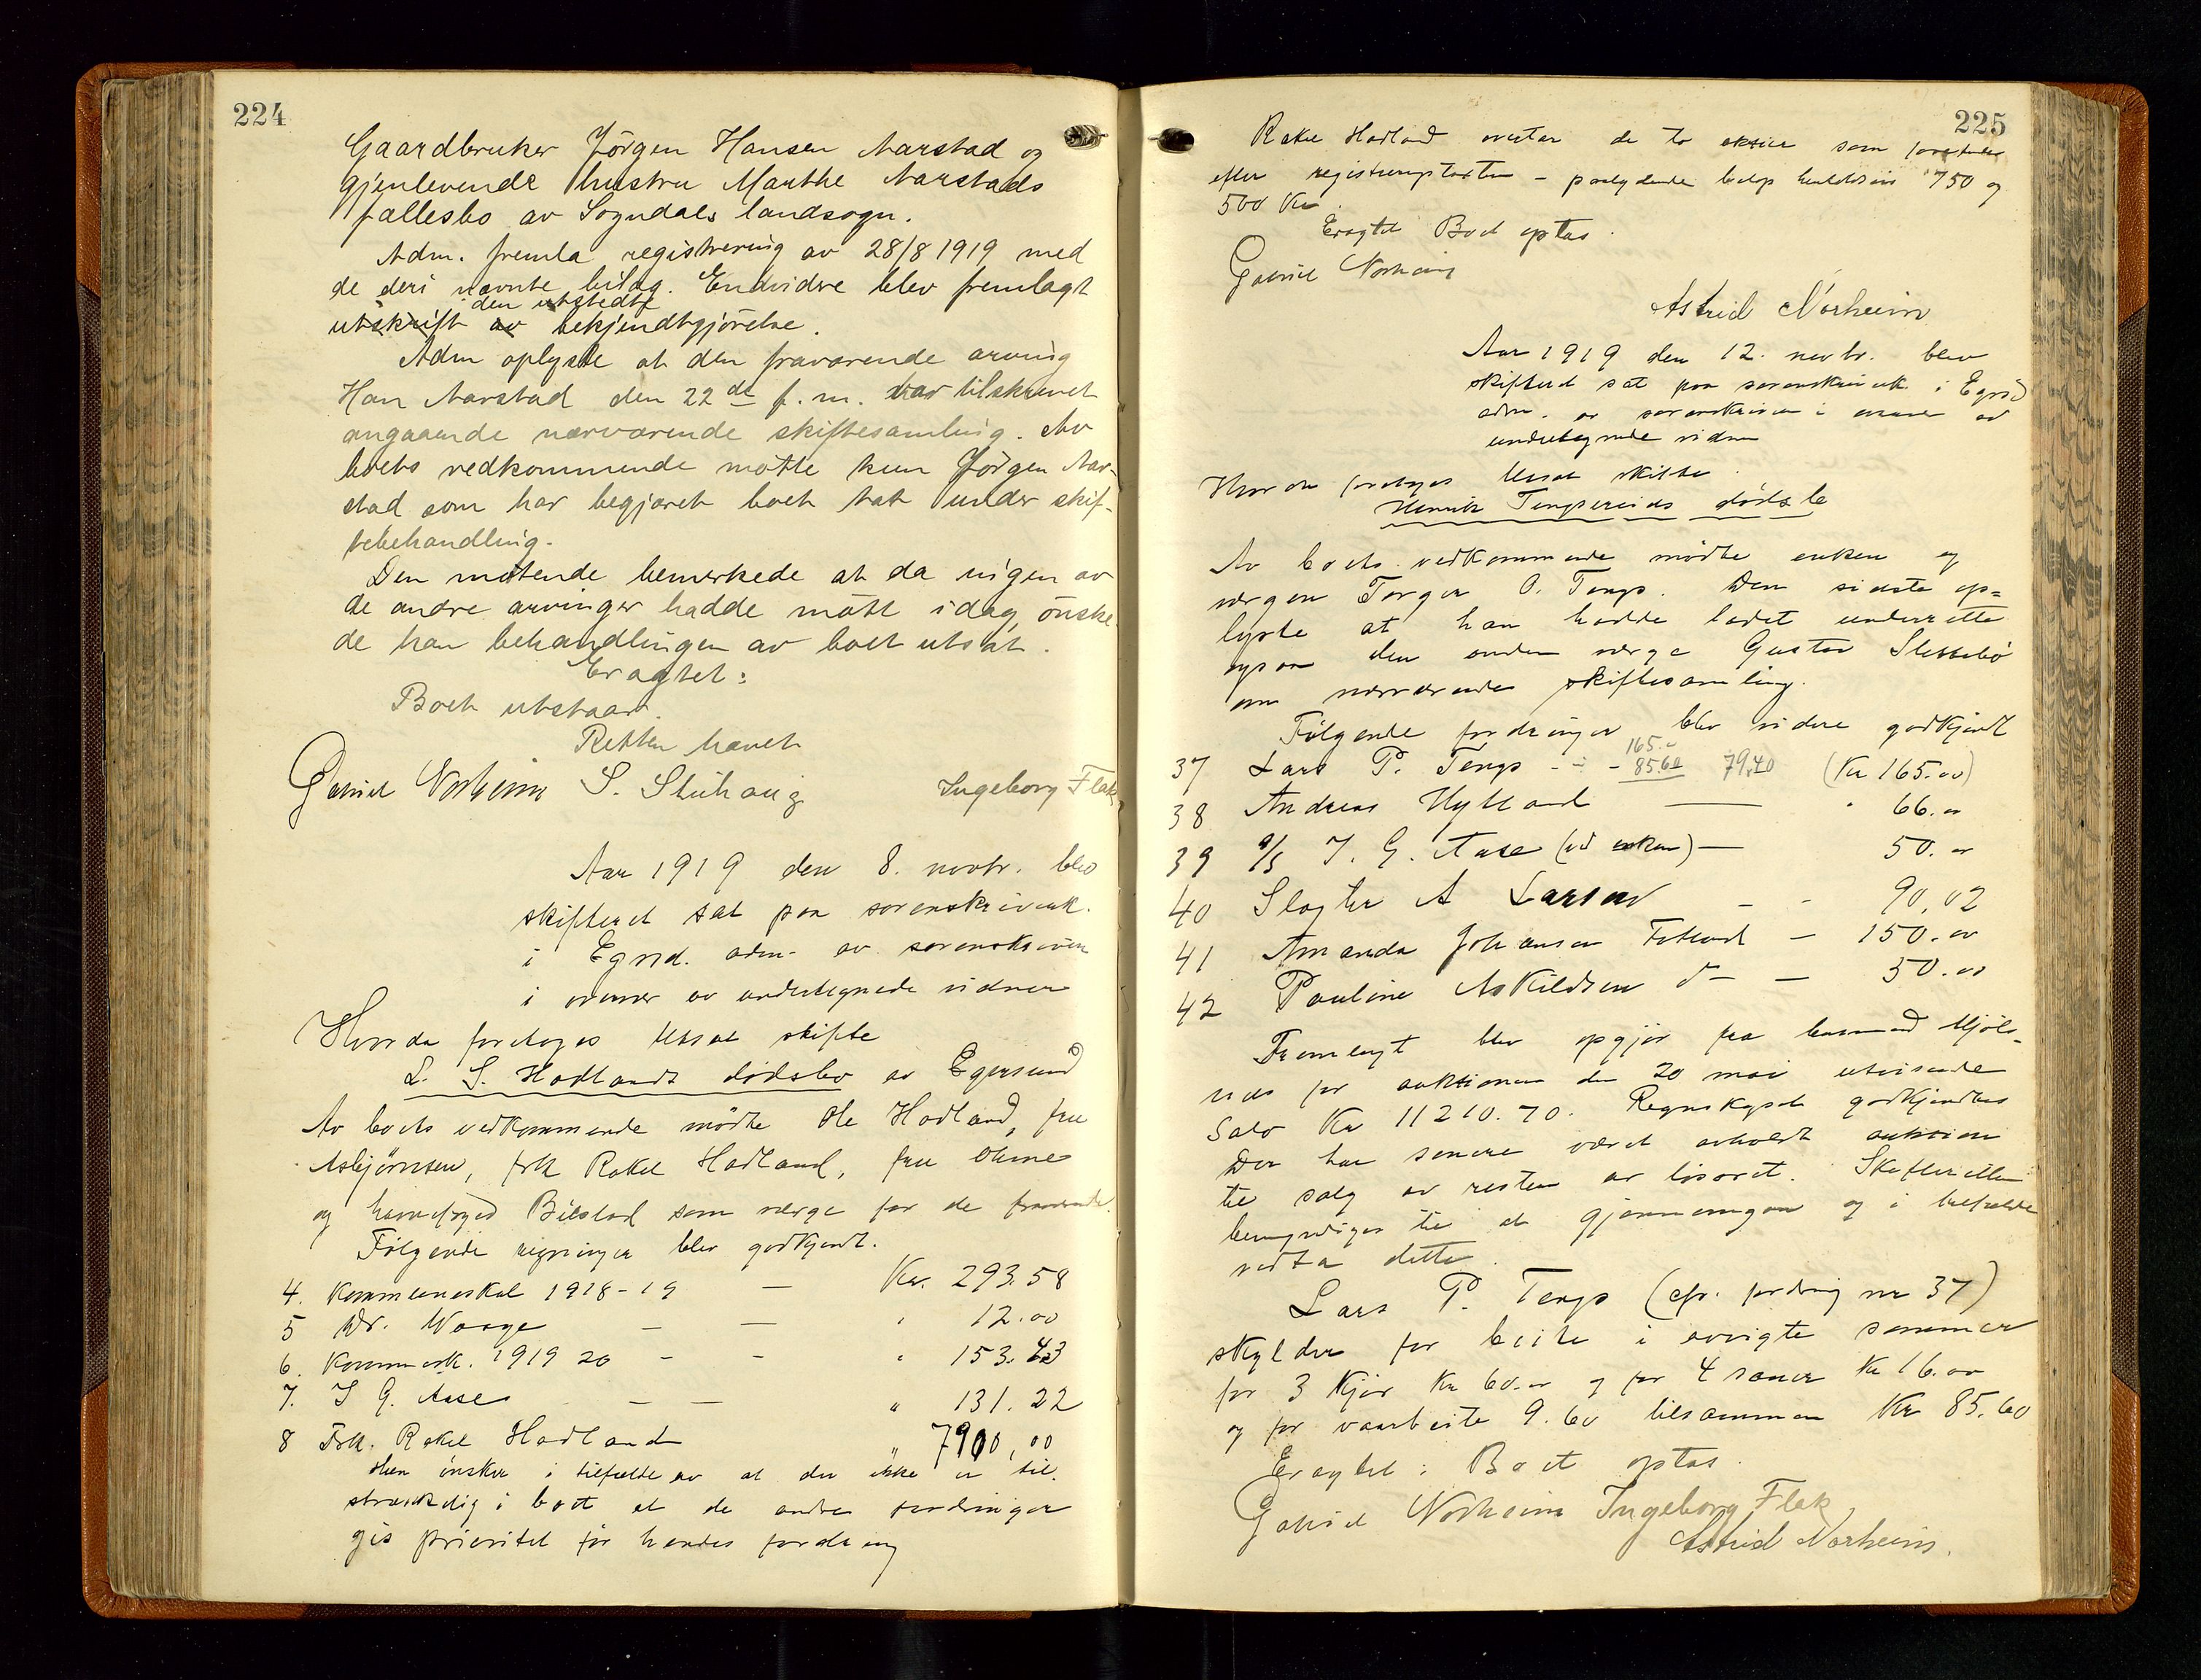 224
Gaardbruker Jörgen Hansen Aarstad og
gjenlevende hustru Marthe Aarstads
fællesbo av Sogndals landsogn.
Adm. fremla registrering av 28/8 1919 med
de deri nævnte bilag. Endvidre blev fremlagt
den utstedte
utskrift av bekjendtgjörelse.
Adm oplyste at den fraværende arving
Han Aarstad den 22de f.m. var tilskrevet
angaaende nærværende skiftesamling. Av
boets vedkommende mötte kun Jörgen Aar-
stad som har begjæret boet tat under skif-
tebehandling.
Den mötende bemerkede at da ingen av
de andre arvinger hadde mött idag, önske-
de han behandlingen av boet utsat.
Eragtet:
Boet utstaar.
Retten hævet
Gabriel Norheim S. Stuhaug Ingeborg Flak
Aar 1919 den 8. novbr. blev
skifteret sat paa sorenskriverk.
i Egrsd. adm. av sorenskriveren
i overvær av undertegnede vidner
Hvorda foretoges utsat skifte
L. S. Hadlands dödsbo av Egersund
Av boets vedkommende mödte Ole Hadland, fru
Asbjörnsen, frk Rakel Hadland, fru
og Bilstad som værge for de fraværende.
Følgende regninger blev godkjendt.
4. Kommuneskat 1918-19 — Kr. 293.58
5 Dr. Waage — — " 12.00
6. Kommunesk. 1919 20 - - " 153.43
7. I G. Aase — — " 131.22
8 Frk. Rakel Hadland " 7900,00
Hun ønsker i tilfælde av at der ikke er til-
strækkelig i boet at de andre fordringer
gis prioritet før hendes fordring
225
Rakel Hadland overtar de to aktier som
efter registreringstaksten - paalydende beløp henholdsvis 750 og
500 Kr.
Eragtet Boet optas.
Gabriel Norheim
Astrid Norheim
Aar 1919 den 12. novbr. blev
skifteret sat paa sorenskriverk. i Egrsd
adm. av sorenskriveren i overvær av
undertegnede vidner
Hvorda foretoges utsat skifte
Henrik Tengsereids dödsbo
Av boets vedkommende mödte enken og
værgen Torger O. Tengs. Den sidste op=
lyste at han hadde ladet underrette
ogsaa den anden værge Gustav Slettebö
om nærværende skiftesamling.
Følgende fordringer blev videre godkjendt
165.-
37 Lars P. Tengs - - - 85.60 79,40 (Kr 165.00)
38 Andreas Hytland — " 66.00
39 a/s I. G. Aase (ved enken) — 50.00
40 Slagter A Larsen - - 90,02
41 Amanda Johansen Fotland — 150.00
42 Pauline Askildsen d — 50.00
Fremlagt blev opgjör fra lensmand Mjöls-
nes for auktionen den 20 mai utvisende
Salo Kr 11210.70. Regnskapet godkjendtes
Der har senere været avholdt auktion
til salg av resten av lösöret. Skifteretten
bemyndiges til at gjennemgaa og i tilfælde
vedta dette.
Lars P. Tengs (cfr. fordring nr 37)
skylder for beite i avvigte sommer
for 3 kjör Kr 60.00 og for 4 sauer Kr 16.00
og for vaarbeite 9.60 tilsammen Kr 85.60
Eragtet: Boet optas.
Gabriel Norheim Ingeborg Flak
Astrid Norheim.